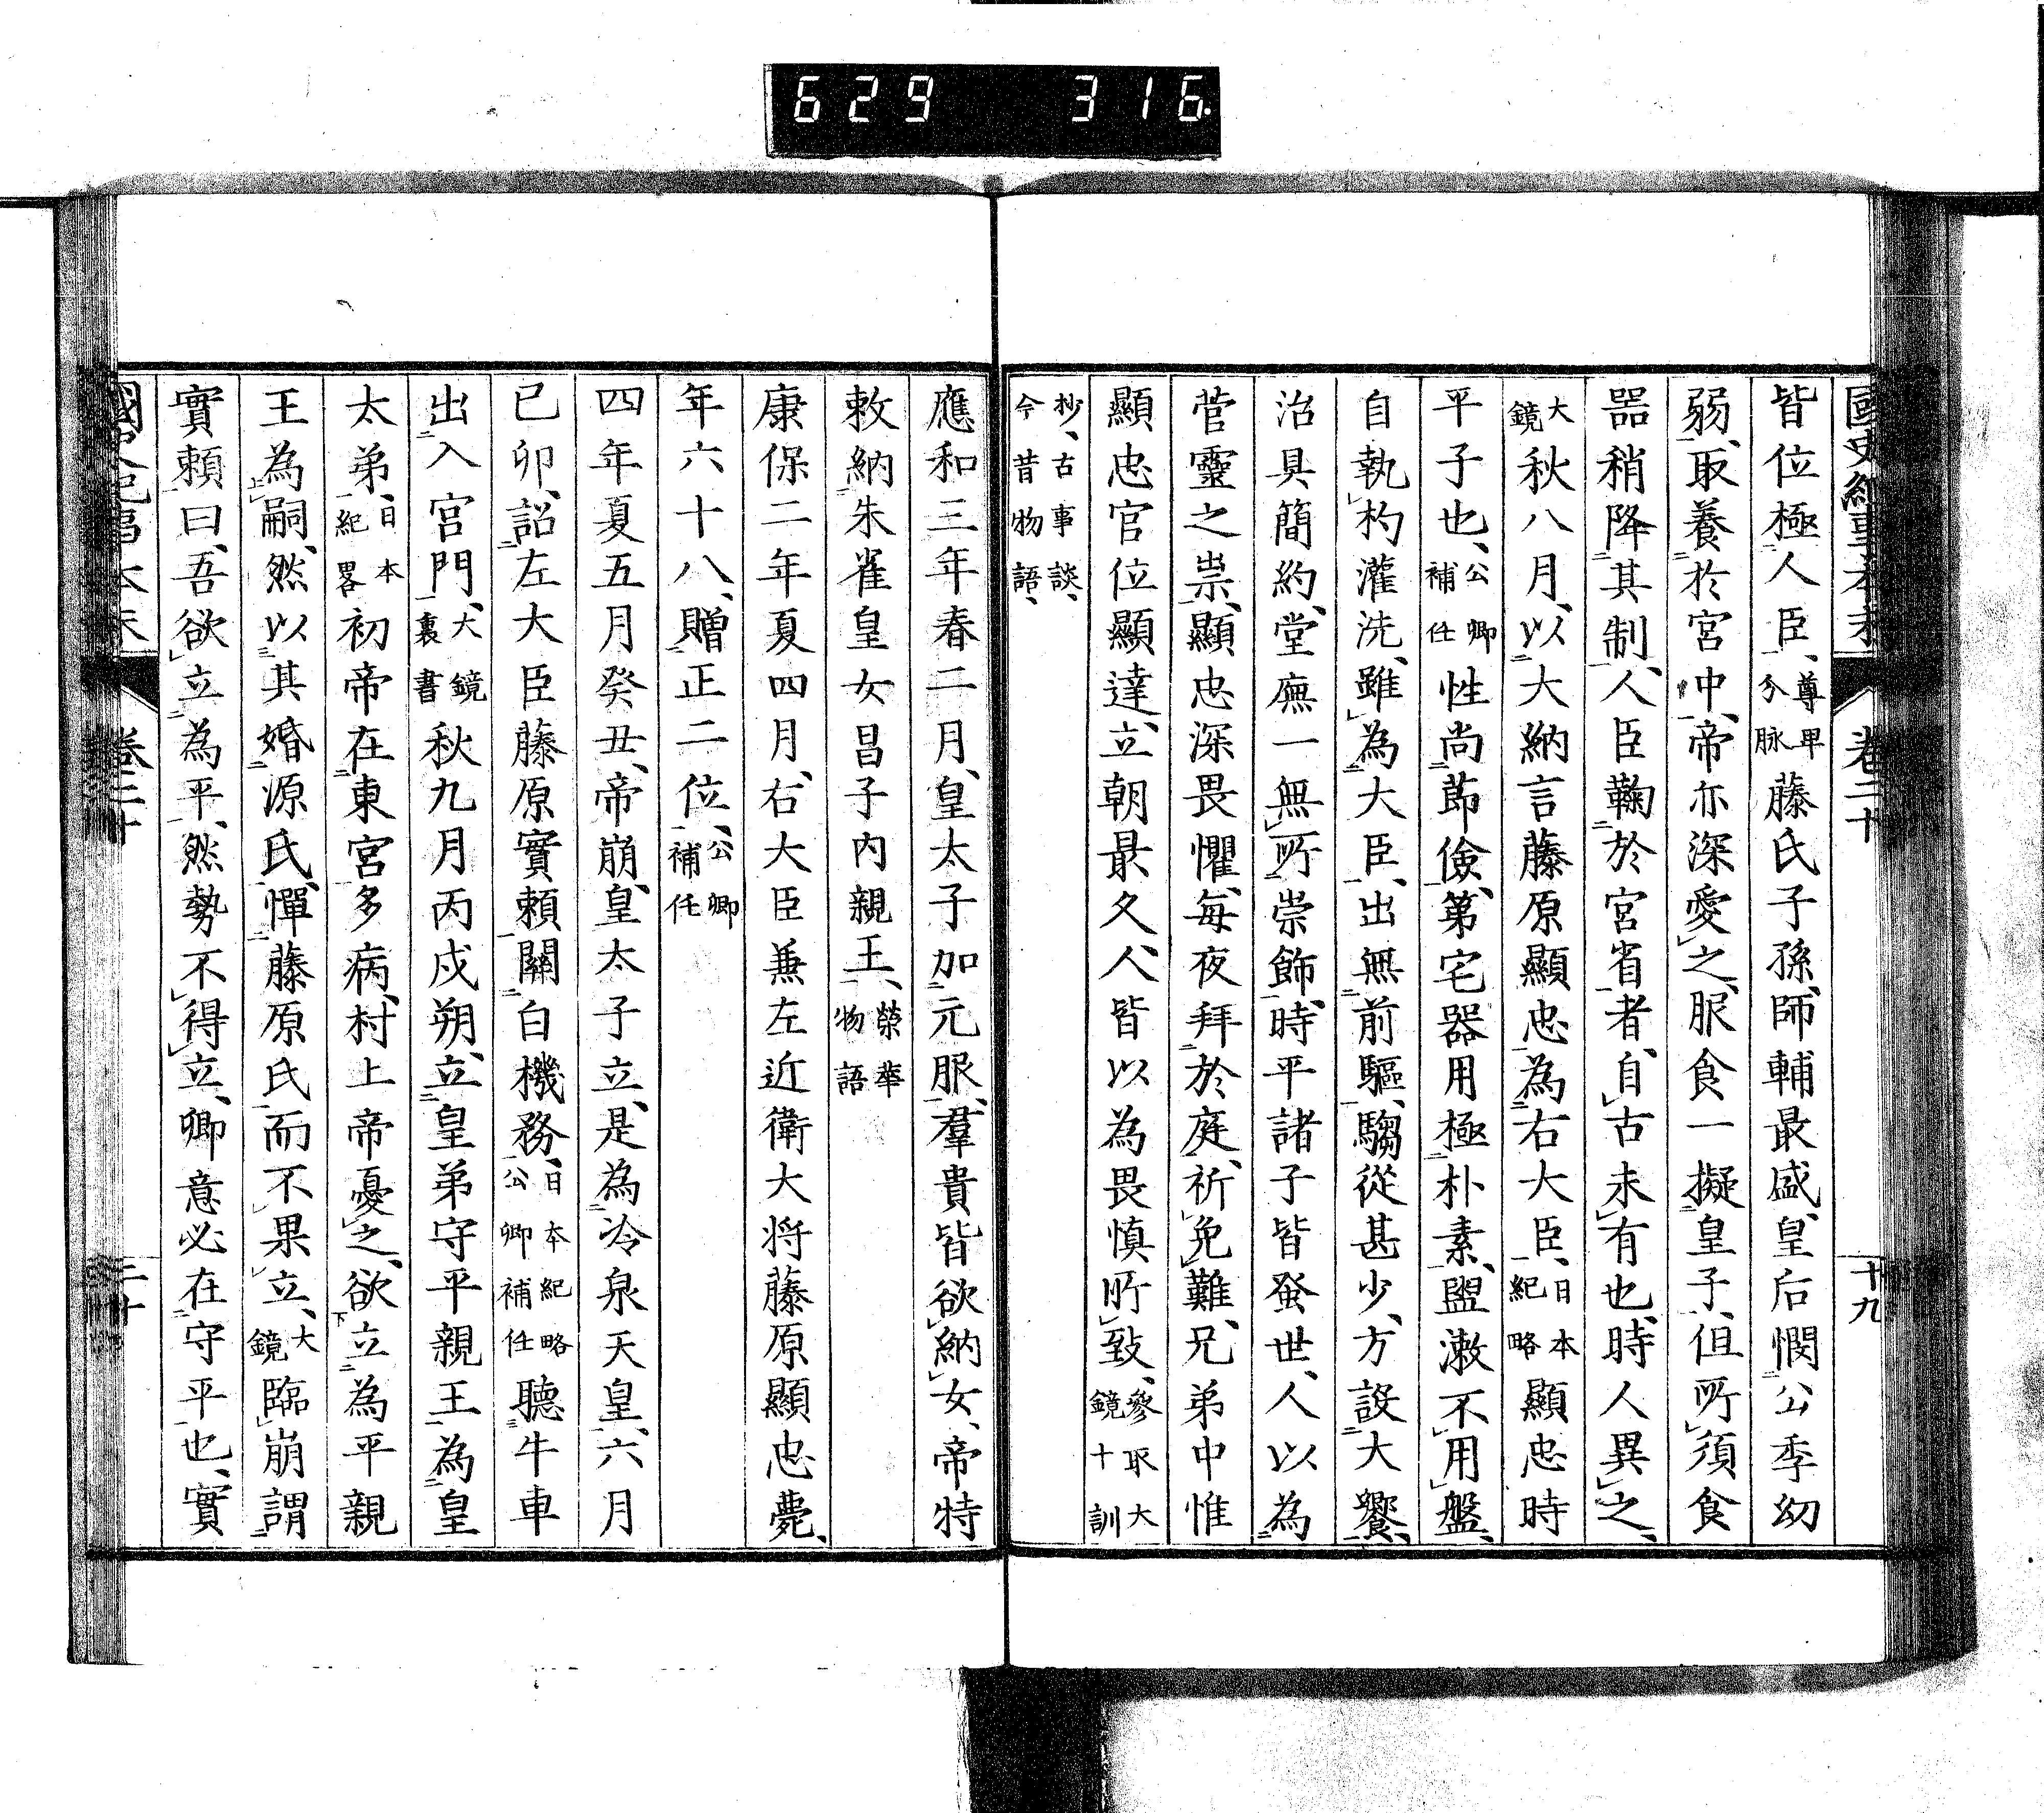 629 316
國史紀事本末 卷二十 十九
皆位極人臣、尊卑分脉藤氏子孫、師輔最盛、皇后憫公季幼
弱、取養於宮中、帝亦深愛之、服食一擬皇子、但所須食
器稍降其制、人臣鞠於宮省者、自古未有也、時人異之、
大鏡秋八月、以大納言藤原顯忠為右大臣、日本紀略顯忠時
平子也、公卿補任性尚節儉、第宅器用極朴素、盥漱不用盤、
自執杓灌洗、雖為大臣、出無前驅、騶從甚少、方設大饗、
治具簡約、堂廡一無所崇飾、時平諸子皆蚤世、人以為
菅靈之祟、顯忠深畏懼、每夜拜於庭、祈免難、兄弟中惟
顯忠官位顯達、立朝最久、人皆以為畏慎所致、參取大鏡十訓
抄、古事談、今昔物語、
應和三年春二月、皇太子加元服、羣貴皆欲納女、帝特
敕納朱雀皇女昌子內親王、榮華物語
康保二年夏四月、右大臣兼左近衛大將藤原顯忠薨、
年六十八、贈正二位、公卿補任
四年夏五月癸丑、帝崩、皇太子立、是為冷泉天皇、六月
己卯、詔左大臣藤原實賴關白機務、日本紀略公卿補任聽牛車
出入宮門、大鏡裏書秋九月丙戌朔、立皇弟守平親王為皇
太弟、日本紀畧初帝在東宮多病、村上帝憂之、欲立為平親
王為嗣、然以其婚源氏、憚藤原氏而不果立、大鏡臨崩謂
實賴曰、吾欲立為平、然勢不得立、卿意必在守平也、實
國史紀事本末 卷二十 二十